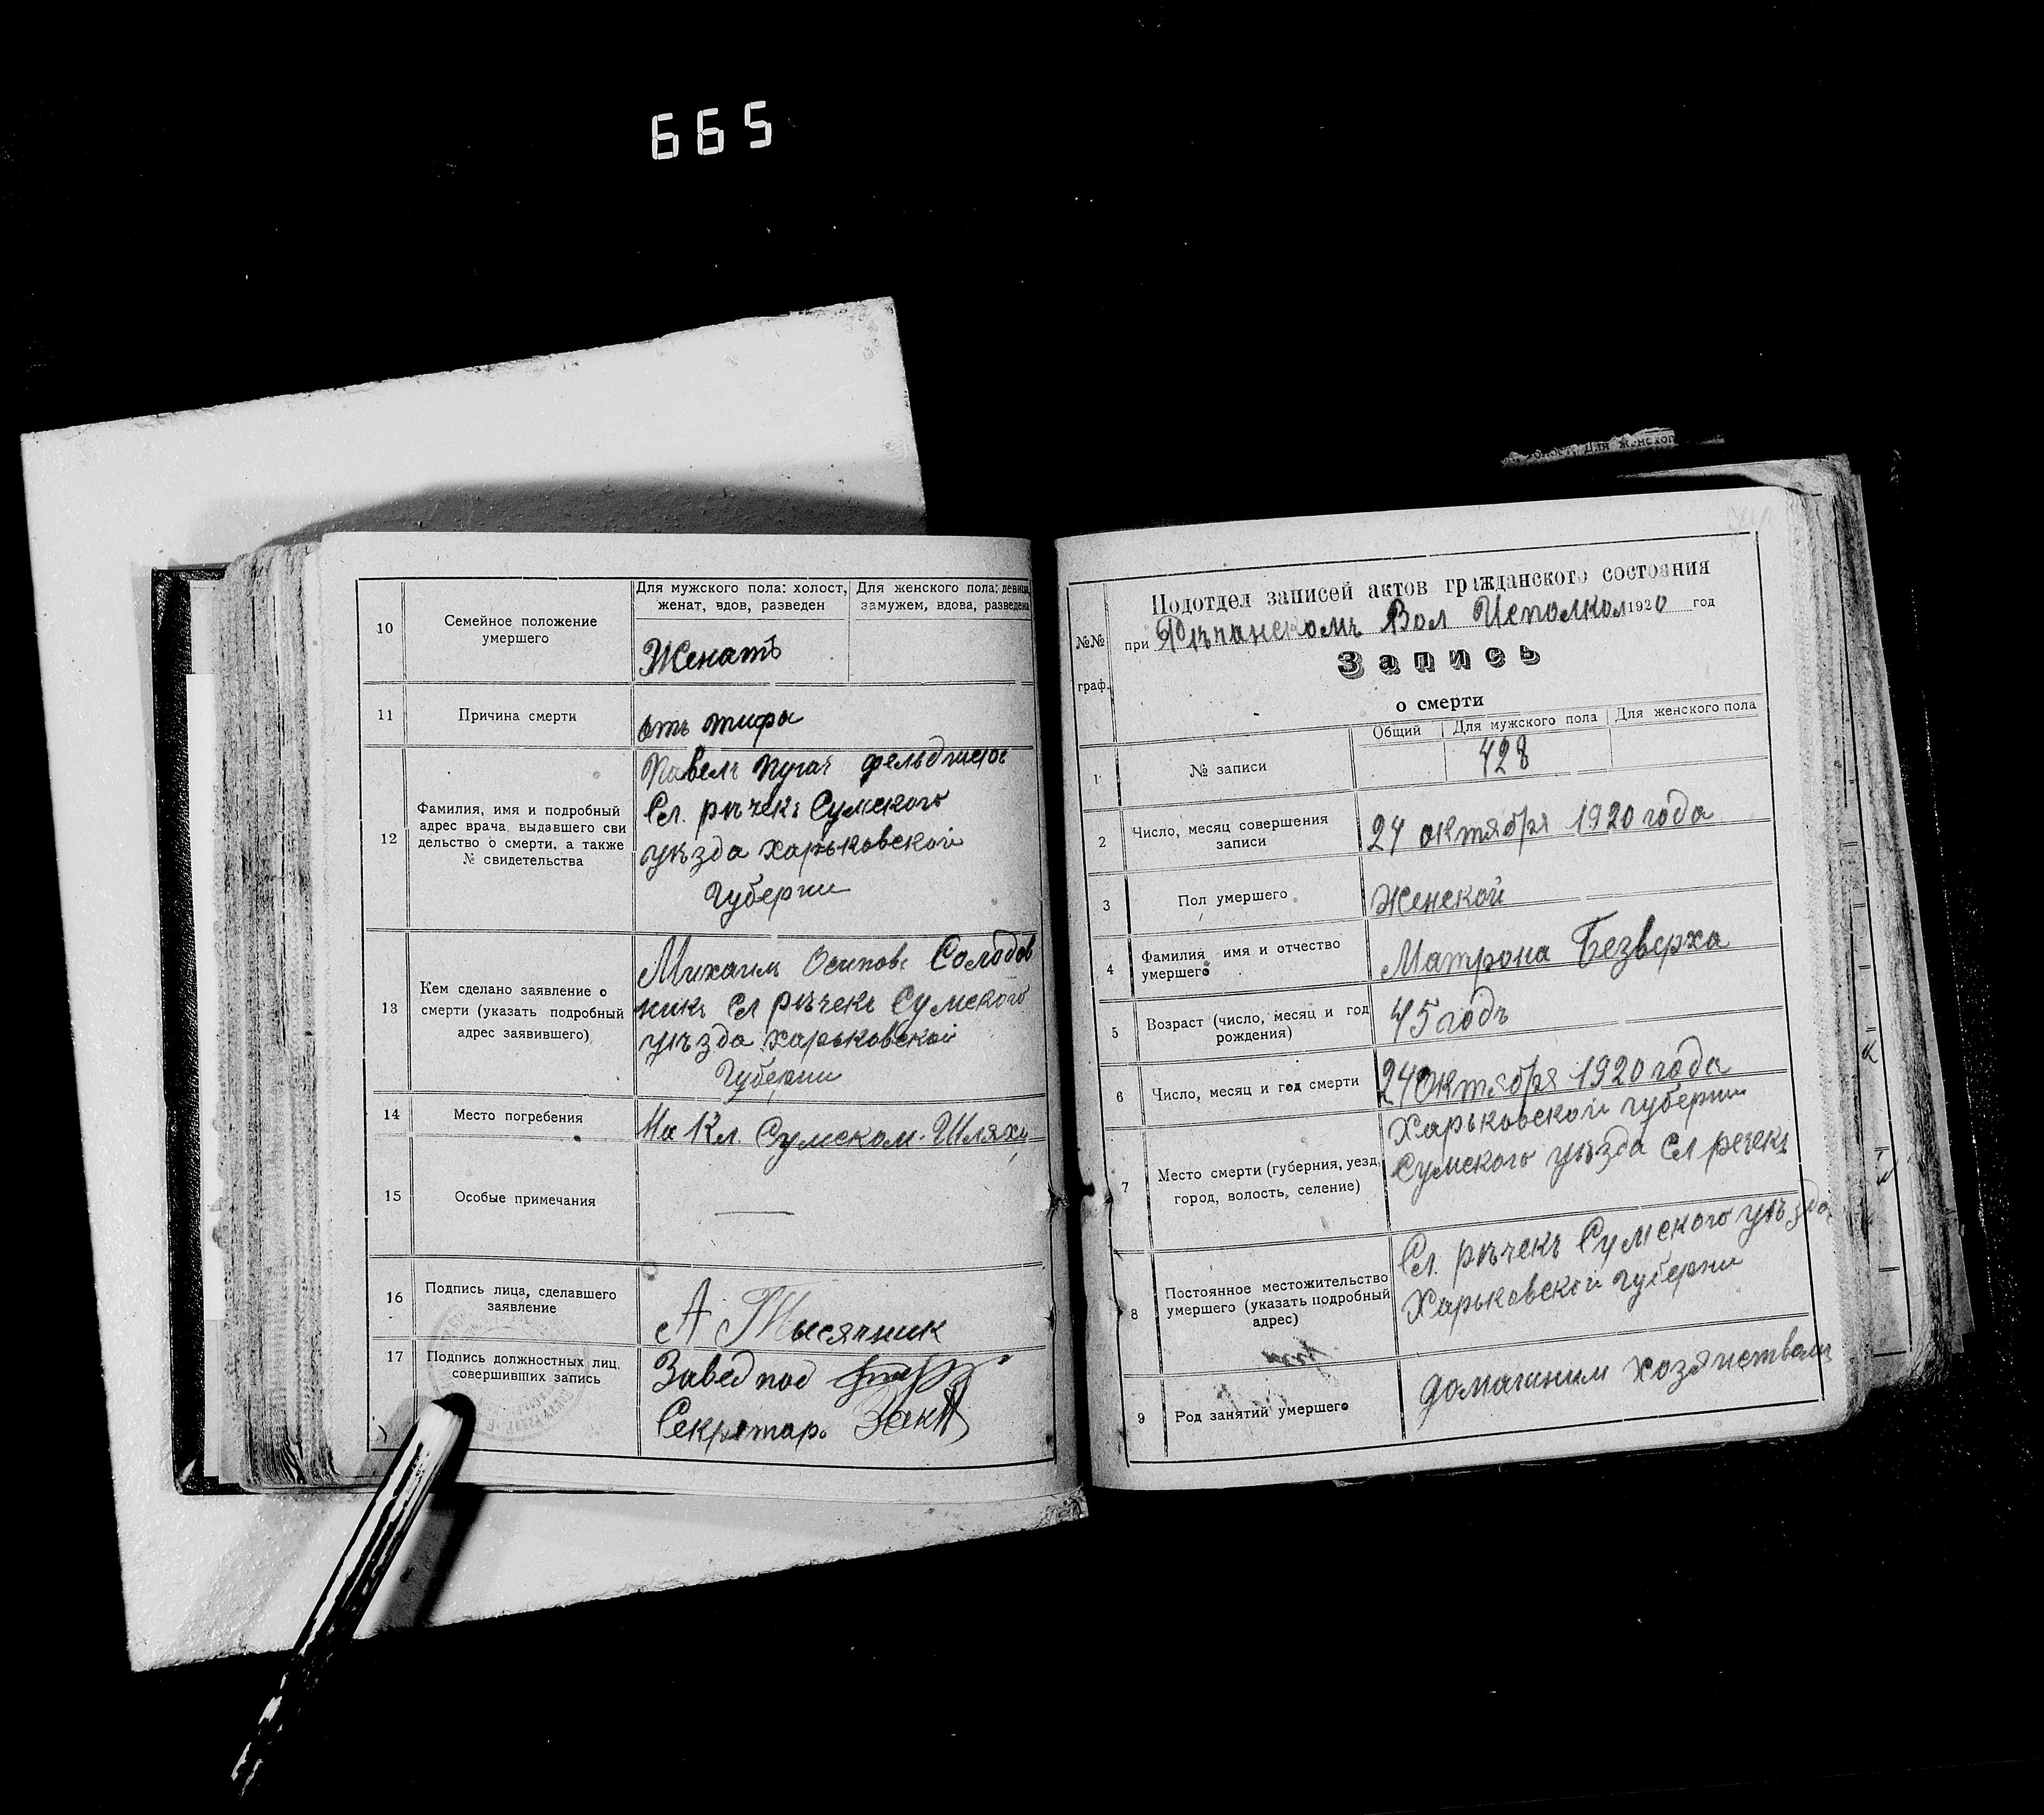 665
10
Семейное положение
умершего
Для мужского пола: холост,
женат, вдов, разведен
Для женского пола: девица,
замужем, вдова, разведена
Женатъ
11
Причина смерти
отъ тифа
12
Фамилия, имя и подробный
адрес врача, выдавшего сви
дельство о смерти, а также
№ свидетельства
Павелъ Пугач фельдшер
Сл. рѣчекъ Сумского
уѣзда Харьковской
Губерни
13
Кем сделано заявление о
смерти (указать подробный
адрес заявившего)
Михаил Осиповъ Солодов
никъ Сл рѣчекъ Сумского
уѣзда Харьковской
Губерни
14
Место погребения
На Кл Сумском. Шляху
15
Особые примечания
16
Подпись лица, сделавшего
заявление
А Тысячник
17
Подпись должностных лиц,
совершивших запись
Завед под
Секретарь
№№
граф.
Подотдел записей актов гражданского состояния
при Рѣчанскомъ Вол Исполком 1920 год
Запись
о смерти
Общий
Для мужского пола
Для женского пола
1
№ записи
428
2
Число, месяц совершения
записи
24 октября 1920 года
3
Пол умершего
Женской
4
Фамилия имя и отчество
умершего
Матрона Безверха
5
Возраст (число, месяц и год
рождения)
45 годъ
6
Число, месяц и год смерти
24 Октября 1920 года
7
Место смерти (губерния, уезд,
город, волость, селение)
Харьковской губерни
Сумского уѣзда Сл речекъ
8
Постоянное местожительство
умершего (указать подробный
адрес)
Сл. рѣчекъ Сумского уѣзда
Харьковской Губерни
9
Род занятий умершего
домашним хозяиством